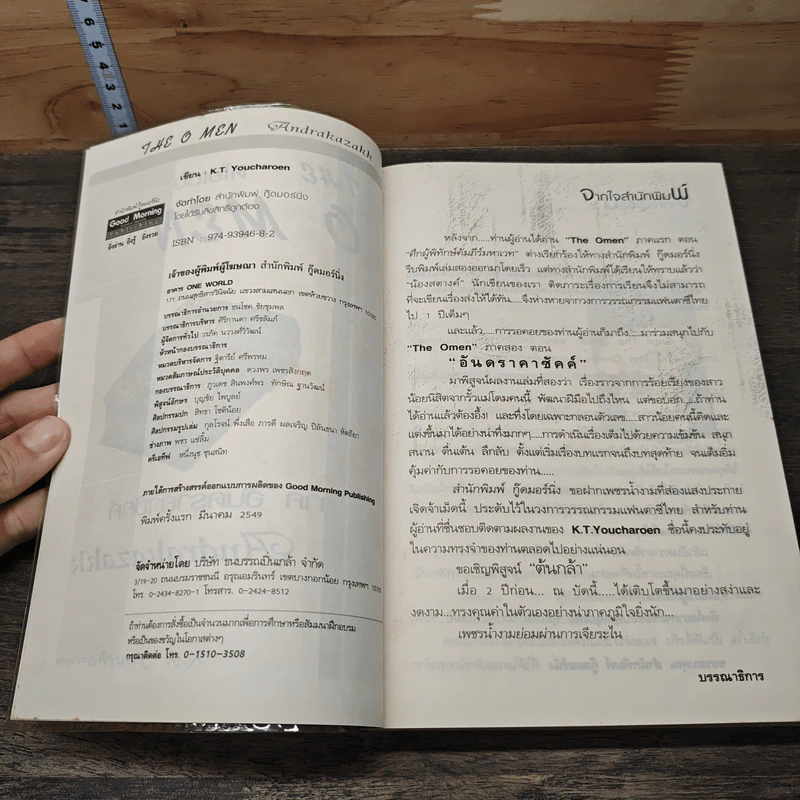 7
6
5
4
3
2
1
THE O MEN Andrakazakk
เขียน : K.T. Youcharoen
สำนักพิมพ์ กู๊ดมอร์นิ่ง
Good Morning
ยิ่งอ่าน ยิ่งรู้ ยิ่งรวย
จัดทำโดย สำนักพิมพ์ กู๊ดมอร์นิ่ง
โดยได้รับลิขสิทธิ์ถูกต้อง
ISBN : 974-93946-8-2
เจ้าของผู้พิมพ์ผู้โฆษณา สำนักพิมพ์ กู๊ดมอร์นิ่ง
อาคาร ONE WORLD
171 ถนนสุทธิสารวินิจฉัย แขวงสามเสนนอก เขตห้วยขวาง กรุงเทพฯ 10310
บรรณาธิการอำนวยการ ชนโชค ชัยชุมพล
บรรณาธิการบริหาร ศิริกานดา ศรีชลัมภ์
ผู้จัดการทั่วไป วรภัค นววงศ์วิวัฒน์
หัวหน้ากองบรรณาธิการ
หมวดบริหารจัดการ ฐิตารีย์ ศรีพรหม
หมวดสัมภาษณ์ประวัติบุคคล ดวงพร เพชรสังกฤต
กองบรรณาธิการ ภูวเดช สินพงศ์พร ทักษิณ ฐานวัฒน์
พิสูจน์อักษร บุญชัย ไพบูลย์
ศิลปกรรมปก สิทธา โชติน้อย
ศิลปกรรมรูปเล่ม กุลโรจน์ พึ่งเสือ ภารดี ผลเจริญ ปิลันธนา หัดถิยา
ช่างภาพ พชร แซ่ลิ้ม
ครีเอทีฟ หนึ่งนุช ขุนสนิท
ภายใต้การสร้างสรรค์ออกแบบการผลิตของ Good Morning Publishing
พิมพ์ครั้งแรก มีนาคม 2549
จัดจำหน่ายโดย บริษัท ชนบรรณปิ่นเกล้า จำกัด
3/19-20 ถนนบรมราชชนนี อรุณอมรินทร์ เขตบางกอกน้อย กรุงเทพฯ 10700
โทร. 0-2434-8270-1 โทรสาร. 0-2424-8512
ถ้าท่านต้องการสั่งซื้อเป็นจำนวนมากเพื่อการศึกษาหรือสัมมนาฝึกอบรม
หรือเป็นของขวัญในโอกาสต่างๆ
กรุณาติดต่อ โทร. 0-1510-3508
จากใจสำนักพิมพ์
หลังจาก.....ท่านผู้อ่านได้อ่าน "The Omen" ภาคแรก ตอน
"ศึกผู้พิทักษ์คัมภีร์มหาเวท" ต่างเรียกร้องให้ทางสำนักพิมพ์ กู๊ดมอร์นิ่ง
รีบพิมพ์เล่มสองออกมาโดยเร็ว แต่ทางสำนักพิมพ์ได้เรียนให้ทราบแล้วว่า
"น้องสตางค์" นักเขียนของเรา ติดภาระเรื่องการเรียนจึงไม่สามารถ
ที่จะเขียนเรื่องส่งให้ได้ทัน....จึงห่างหายจากวงการวรรณกรรมแฟนตาซีไทย
ไป 1 ปีเต็มๆ
และแล้ว.....การรอคอยของท่านผู้อ่านก็มาถึง.....มาร่วมสนุกไปกับ
"The Omen" ภาคสอง ตอน
"อันดราคาซัคค์"
มาพิสูจน์ผลงานเล่มที่สองว่า เรื่องราวจากการร้อยเรียงของสาว
น้อยนิสิตจากรั้วแม่โดมคนนี้ พัฒนาฝีมือไปถึงไหน แต่ขอบอก....ถ้าท่าน
ได้อ่านแล้วต้องอึ้ง! และทึ่งโดยเฉพาะกลอนตัวเลข.....สาวน้อยคนนี้คิดและ
แต่งขึ้นมาได้อย่างน่าทึ่งมากๆ....การดำเนินเรื่องเต็มไปด้วยความเข้มข้น สนุก
สนาน ตื่นเต้น ลึกลับ ตั้งแต่เริ่มเรื่องบทแรกจนถึงบทสุดท้าย จนเต็มอิ่ม
คุ้มค่ากับการรอคอยของท่าน.....
สำนักพิมพ์ กู๊ดมอร์นิ่ง ขอฝากเพชรน้ำงามที่ส่องแสงประกาย
เจิดจ้าเม็ดนี้ ประดับไว้ในวงการวรรณกรรมแฟนตาซีไทย สำหรับท่าน
ผู้อ่านที่ชื่นชอบติดตามผลงานของ K.T.Youcharoen ชื่อนี้คงประทับอยู่
ในความทรงจำของท่านตลอดไปอย่างแน่นอน
ขอเชิญพิสูจน์ "ต้นกล้า"
เมื่อ 2 ปีก่อน... ณ บัดนี้.....ได้เติบโตขึ้นมาอย่างสง่าและ
งดงาม...ทรงคุณค่าในตัวเองอย่างน่าภาคภูมิใจยิ่งนัก...
เพชรน้ำงามย่อมผ่านการเจียระไน
บรรณาธิการ